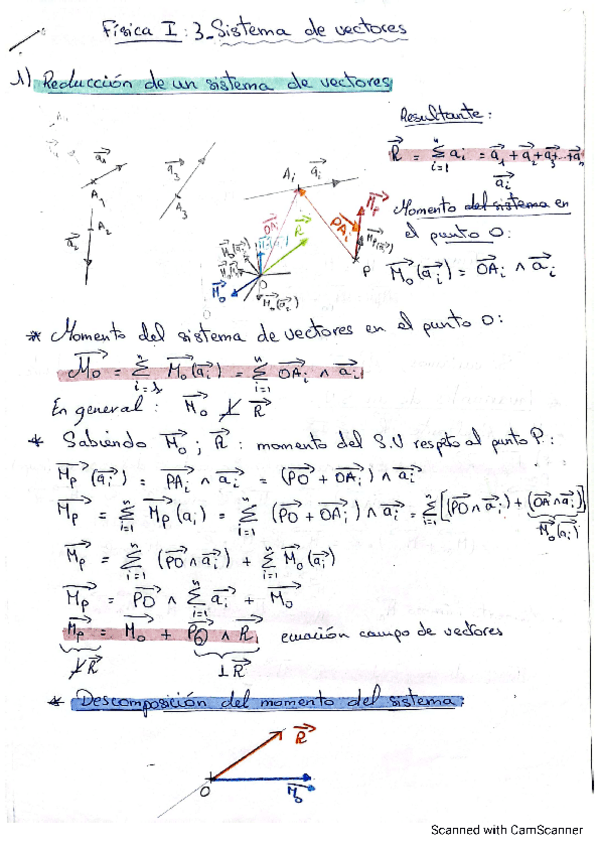 Física I : 3_Sistema de vectores
1) Reducción de un sistema de vectores
Resultante:
R⃗ = Σ_{i=1}^{n} a⃗i = a⃗1 + a⃗2 + a⃗3 ... + a⃗n
a⃗i
Momento del sistema en
el punto O:
M⃗o(a⃗i) = OA⃗i ∧ a⃗i
a⃗1
A1
a⃗2
A2
a⃗3
A3
Ai
a⃗i
OAi
R⃗
M⃗o
M⃗o(a⃗i)
O
PAi
M⃗p
M⃗p(a⃗i)
P
* Momento del sistema de vectores en el punto O:
M⃗o = Σ_{i=1}^{n} M⃗o(a⃗i) = Σ_{i=1}^{n} OA⃗i ∧ a⃗i
En general : M⃗o ⊥̸ R⃗
* Sabiendo M⃗o ; R⃗ : momento del S.V respto al punto P:
M⃗p (a⃗i) = PA⃗i ∧ a⃗i = (PO⃗ + OA⃗i) ∧ a⃗i
M⃗p = Σ_{i=1}^{n} M⃗p(ai) = Σ_{i=1}^{n} (PO⃗ + OA⃗i) ∧ a⃗i = Σ_{i=1}^{n} [(PO⃗ ∧ a⃗i) + (OA⃗i ∧ a⃗i)]
M⃗o(a⃗i)
M⃗p = Σ_{i=1}^{n} (PO⃗ ∧ a⃗i) + Σ_{i=1}^{n} M⃗o(a⃗i)
M⃗p = PO⃗ ∧ Σ_{i=1}^{n} a⃗i + M⃗o
M⃗p = M⃗o + PO⃗ ∧ R⃗ ecuación campo de vectores
⊥̸ R⃗ ⊥ R⃗
* Descomposición del momento del sistema:
R⃗
O
M⃗o
Scanned with CamScanner